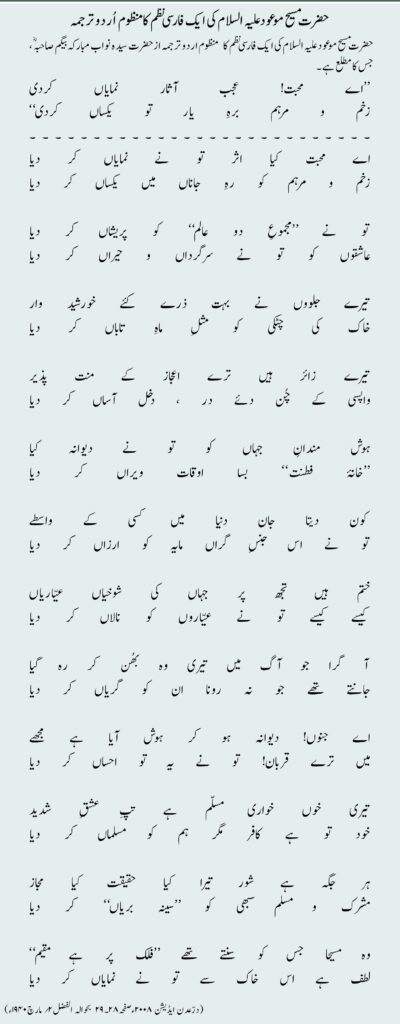 حضرت مسیح موعود علیہ السلام کی ایک فارسی نظم کا منظوم اُردو ترجمہ
حضرت مسیح موعود علیہ السلام کی ایک فارسی نظم کا منظوم اردو ترجمہ از حضرت سیدہ نواب مبارکہ بیگم صاحبہؓ،
جس کا مطلع ہے۔
’’اے محبت! عجب آثار نمایاں کردی
زخم و مرہم برہِ یار تو یکساں کردی‘‘
اے محبت کیا اثر تو نے نمایاں کر دیا
زخم و مرہم کو رہِ جاناں میں یکساں کر دیا
تو نے ’’مجموعِ دو عالم‘‘ کو پریشاں کر دیا
عاشقوں کو تو نے سرگرداں و حیراں کر دیا
تیرے جلووں نے بہت ذرے کئے خورشید وار
خاک کی چٹکی کو مثلِ ماہِ تاباں کر دیا
تیرے زائر ہیں ترے اعجاز کے منت پذیر
واپسی کے چُن دئے در ، دخل آساں کر دیا
ہوش مندانِ جہاں کو تو نے دیوانہ کیا
’’خانۂ فطنت‘‘ بسا اوقات ویراں کر دیا
کون دیتا جان دنیا میں کسی کے واسطے
تو نے اس جنسِ گراں مایہ کو ارزاں کر دیا
ختم ہیں تجھ پر جہاں کی شوخیاں عیّاریاں
کیسے کیسے تو نے عیّاروں کو نالاں کر دیا
آ گرا جو آگ میں تیری وہ بھُن کر رہ گیا
جانتے تھے جو نہ رونا ان کو گریاں کر دیا
اے جنوں! دیوانہ ہو کر ہوش آیا ہے مجھے
میں ترے قربان! تو نے یہ تو احساں کر دیا
تیری خوں خواری مسلّم ہے تپِ عشقِ شدید
خود تو ہے کافر مگر ہم کو مسلماں کر دیا
ہر جگہ ہے شور تیرا کیا حقیقت کیا مجاز
مشرک و مسلم سبھی کو ’’سینہ بریاں‘‘ کر دیا
وہ مسیحا جس کو سنتے تھے ’’فلک پر ہے مقیم‘‘
لطف ہے اس خاک سے تو نے نمایاں کر دیا
(درّعدن ایڈیشن ۲۰۰۸ء صفحہ ۲۸۔۲۹ بحوالہ الفضل ۲؍ مارچ ۱۹۴۰ء)